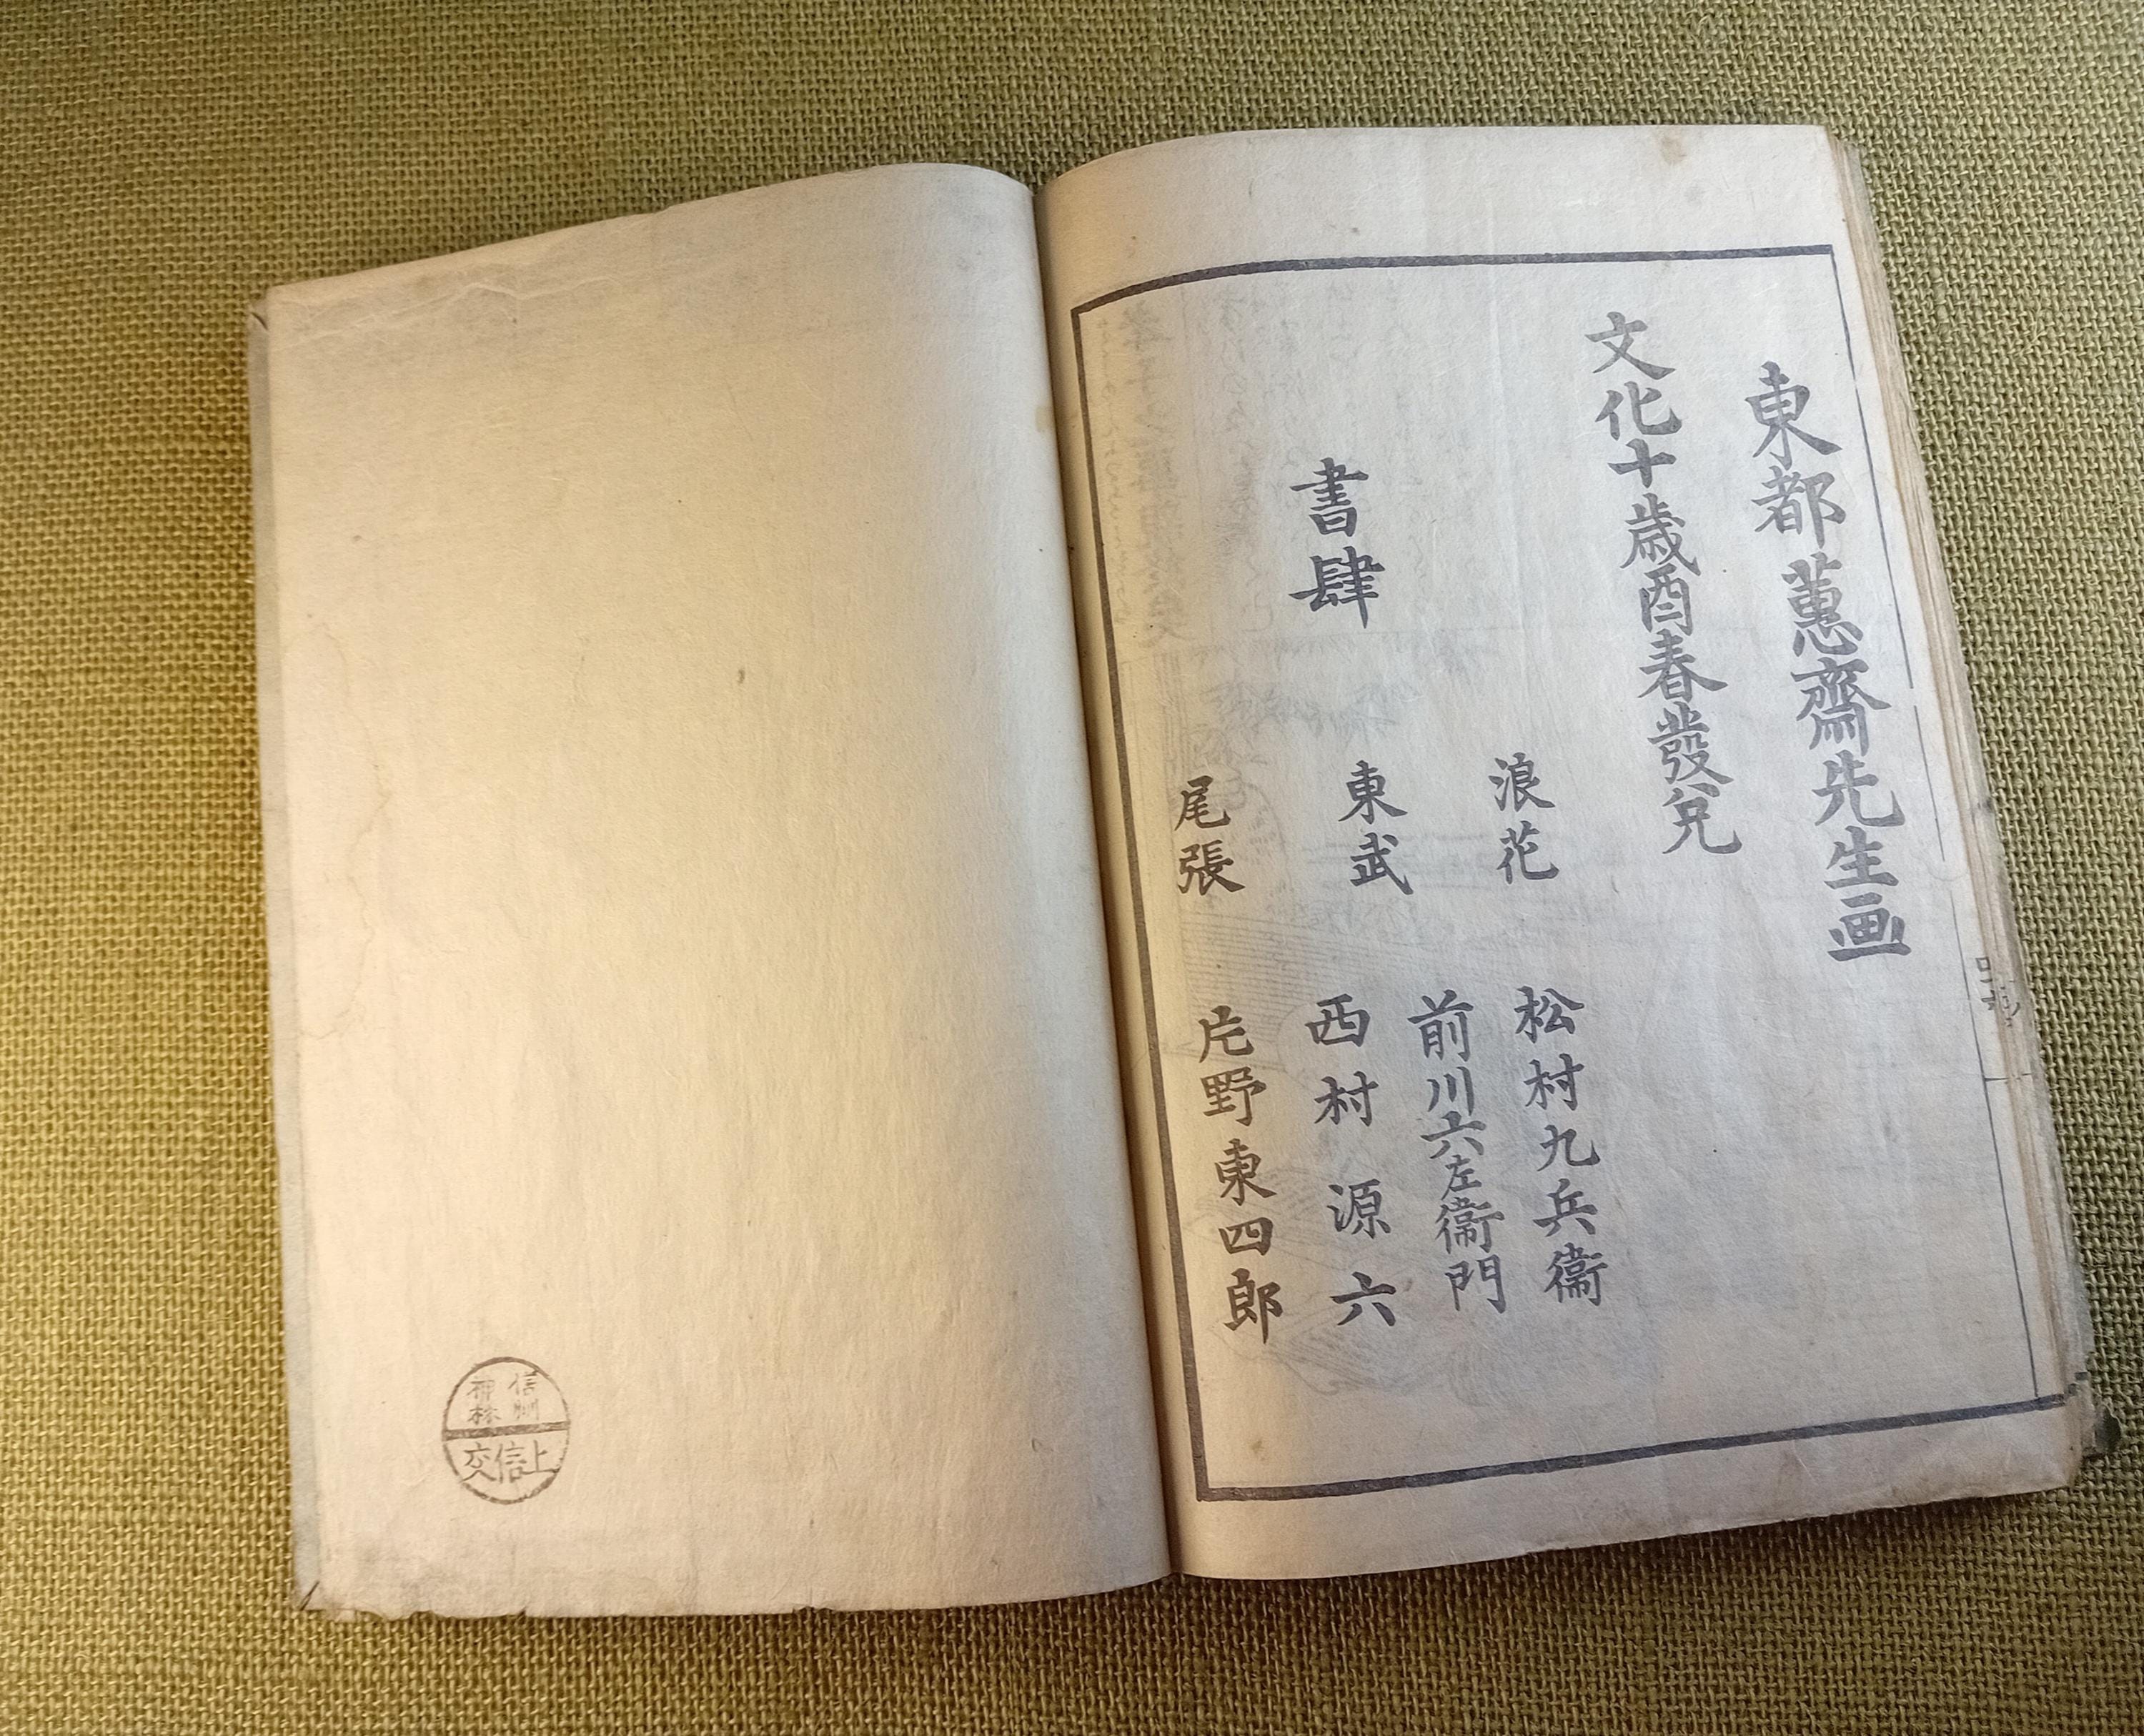 東都蕙齋先生画
文化十歳酉春發兌
書肆
浪花
松村九兵衞
前川六左衞門
東武
西村源六
尾張
片野東四郎
信州
神林
上信交